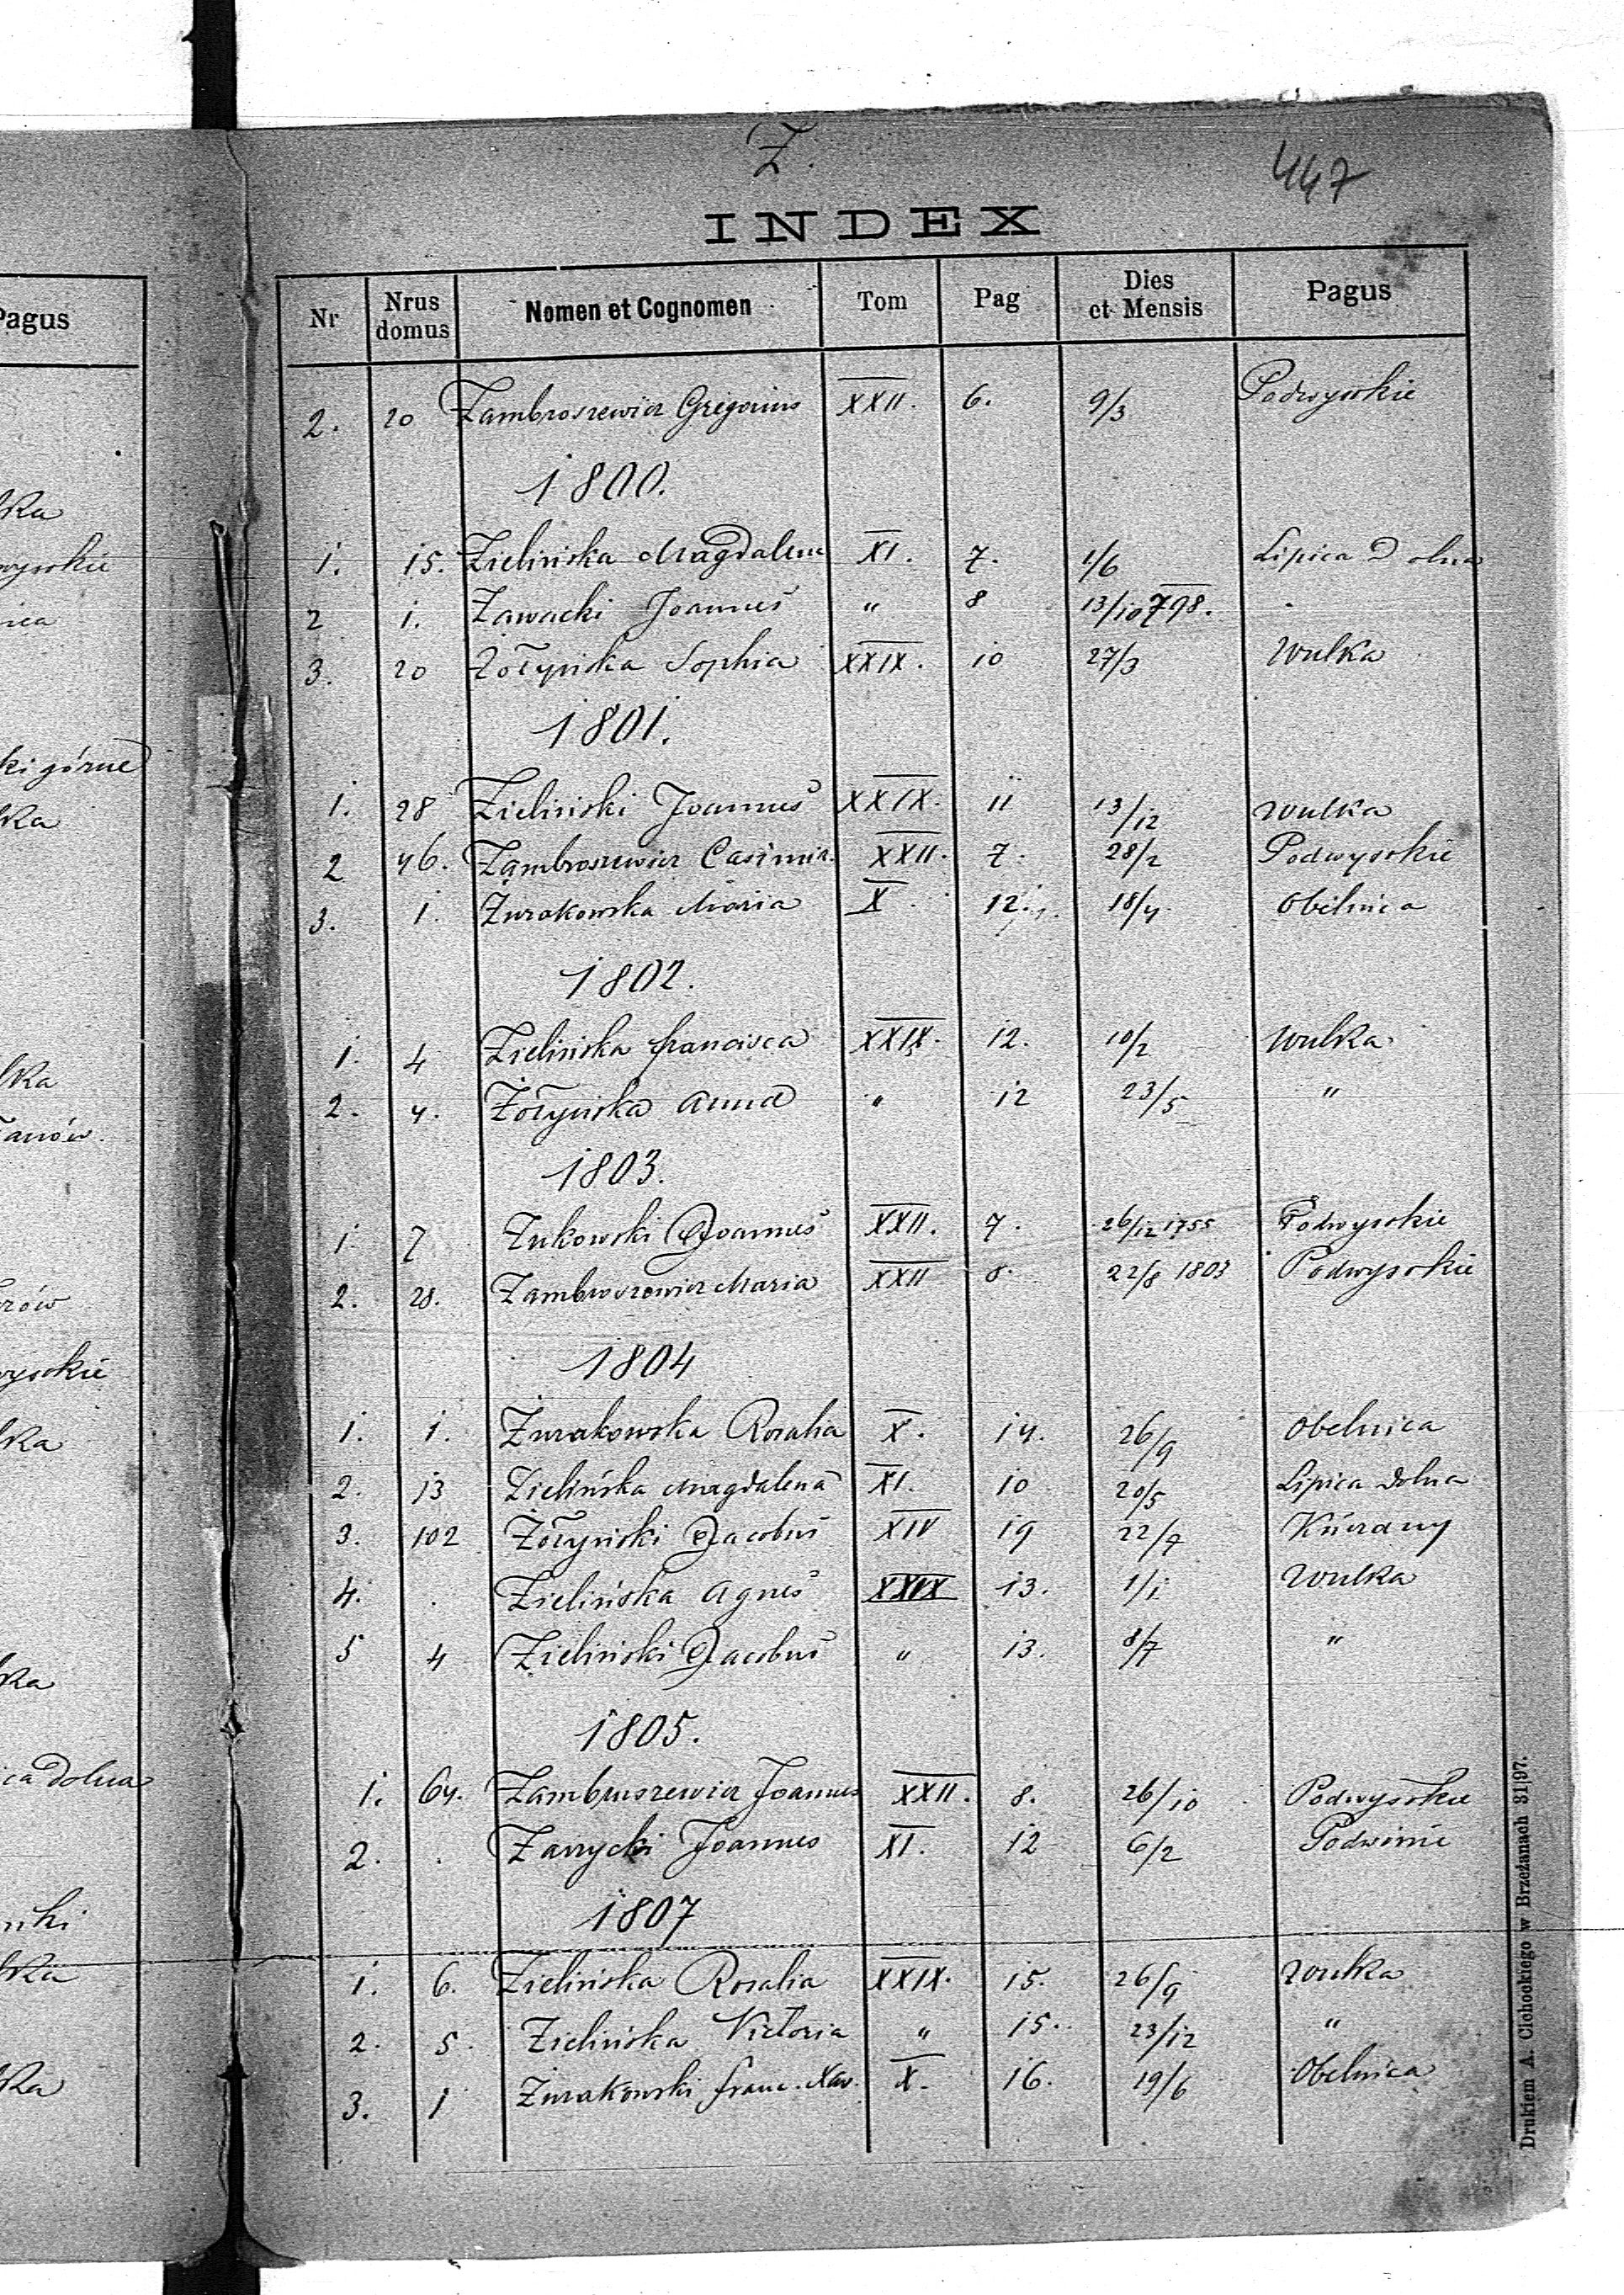 Z.
447
INDEX
Pagus
Nr | Nrus domus | Nomen et Cognomen | Tom | Pag | Dies et Mensis | Pagus
2. 20 Zambroszewicz Gregorius XXII. 6. 9/3 Podwysokie
1800.
1. 15. Zielińska Magdalena XI. 7. 1/6 Lipica Dolna
2 1. Zawacki Joannes " 8 13/10 798.
3. 20 Żołyńska Sophia XXIX. 10 27/3 Wulka
1801.
1. 28 Zieliński Joannes XXIX. 11 13/12 Wulka
2 46. Zambroszewicz Casimir. XXII. 7. 28/2 Podwysokie
3. 1. Żurakowska Maria X. 12. 18/4 Obelnica
1802.
1. 4 Zielińska Francisca XXIX. 12. 10/2 Wulka
2. 4. Żołyńska Anna " 12 23/5 "
1803.
1. 7 Żukowski Joannes XXII. 7. 26/12 1755 Podwysokie
2. 28. Zambroszewicz Maria XXII 8. 22/8 1803 Podwysokie
1804
1. 1. Żurakowska Rosalia X. 14. 26/9 Obelnica
2. 13 Zielińska Magdalena XI. 10 20/5 Lipica Dolna
3. 102 Żołyński Jacobus XIV 19 22/7
4. . Zielińska Agnes XXIX 13. 1/1 Wulka
5 4 Zieliński Jacobus " 13. 8/7 "
1805.
1. 64. Zambruszewicz Joannes XXII. 8. 26/10 Podwysokie
2. . Joannes XI. 12 6/2
1807
1. 6. Zielińska Rosalia XXIX. 15. 26/9 Wulka
2. 5. Zielińska Victoria " 15. 23/12 "
3. 1 Żurakowski Franc. Xav. X. 16. 19/6 Obelnica
Drukiem A. Cichockiego w Brzeżanach 31|97.